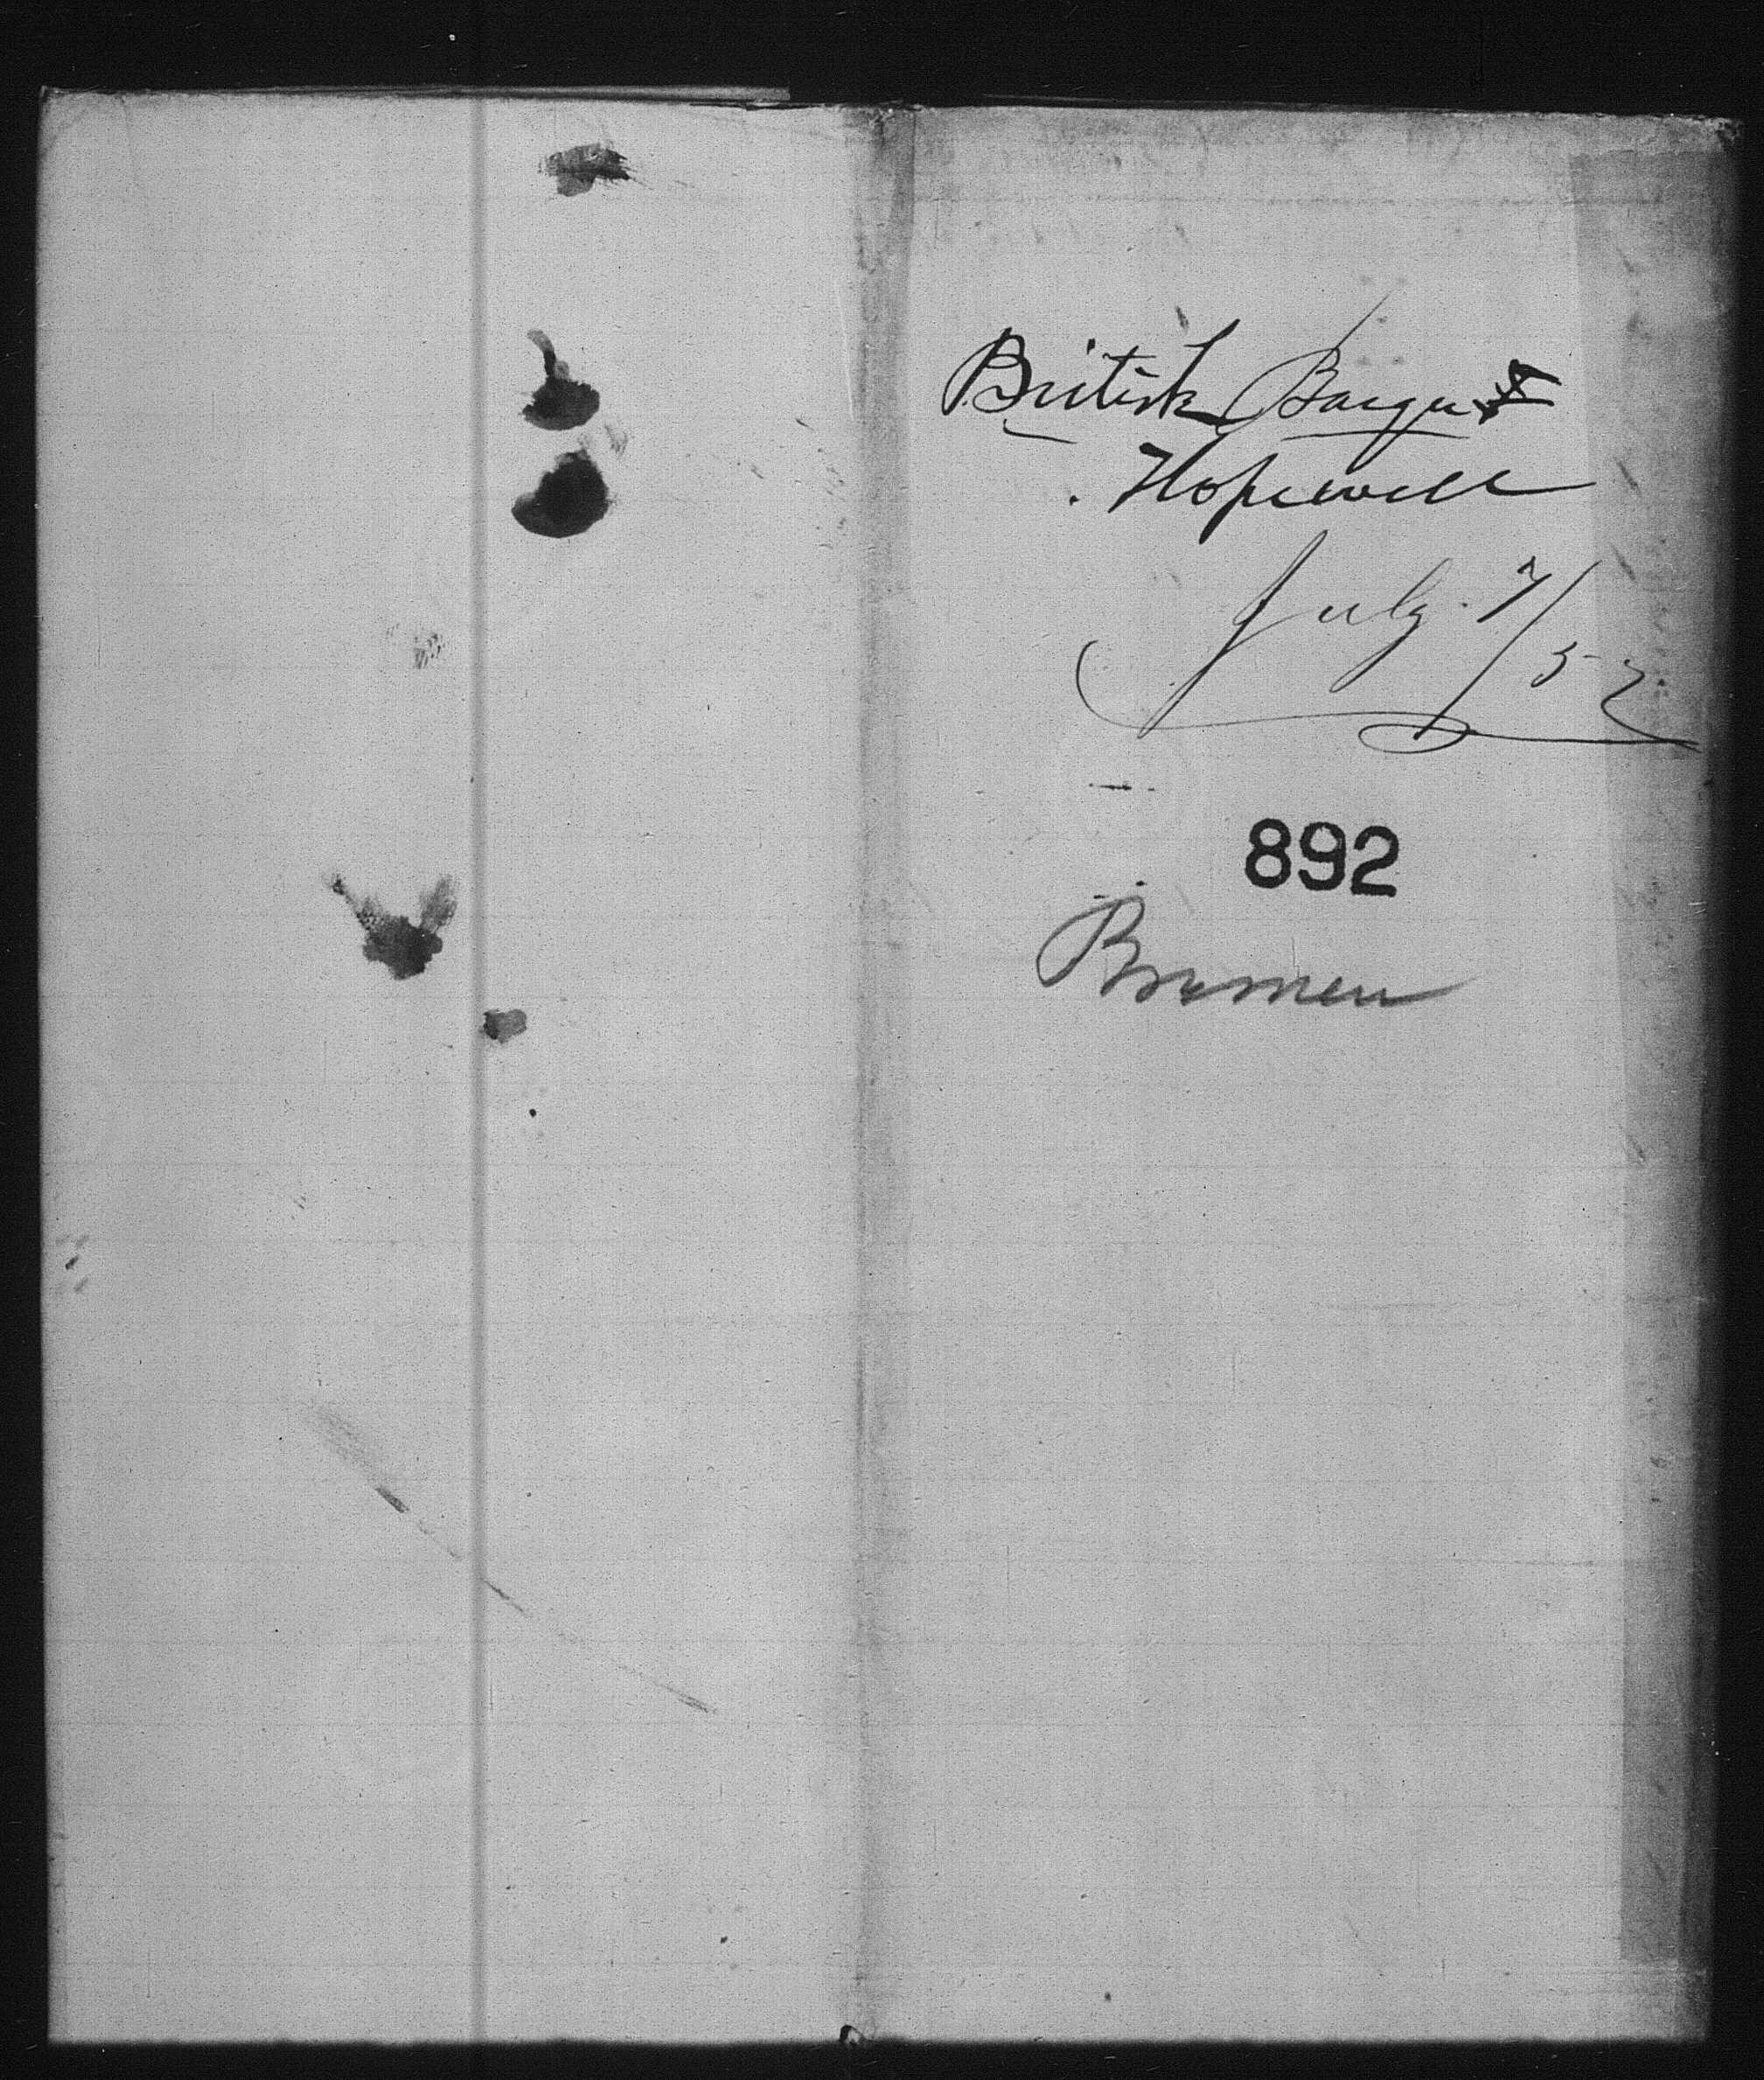 British Barque
Hopewell
July 7/52
892
Bremen